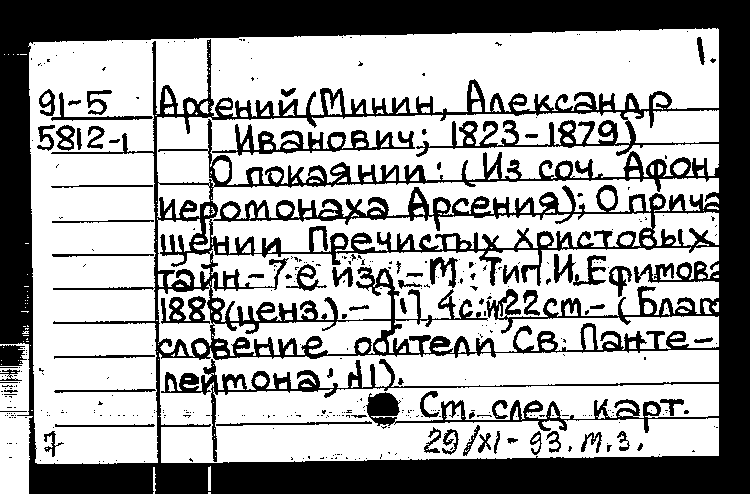 1.
91-5 Арсений (Минин, Александр
5812-1 Иванович; 1823-1879).
О покаянии: (Из соч. Афон.
иеромонаха Арсения); О прича
щении Пречистых Христовых
тайн.-7-е изд.-М.: Тип. И. Ефимова
1888(ценз.).- 4 с.; 22 ст.- (Благо
словение обители Св. Панте-
леймона; №1).
Ст. след. карт.
7 29/XI-93. т.з.